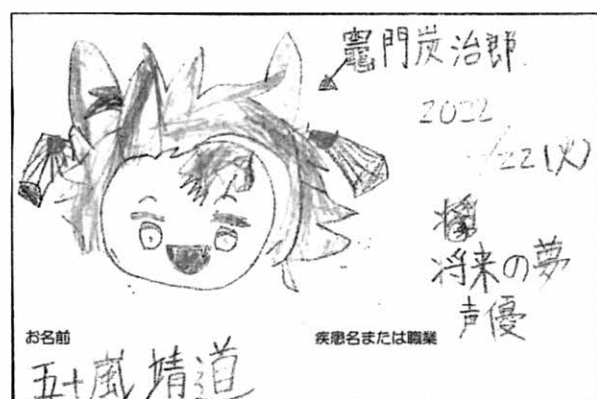 竈門炭治郎
2022
/22(火)
将来の夢
声優
お名前
疾患名または職業
五十嵐靖道